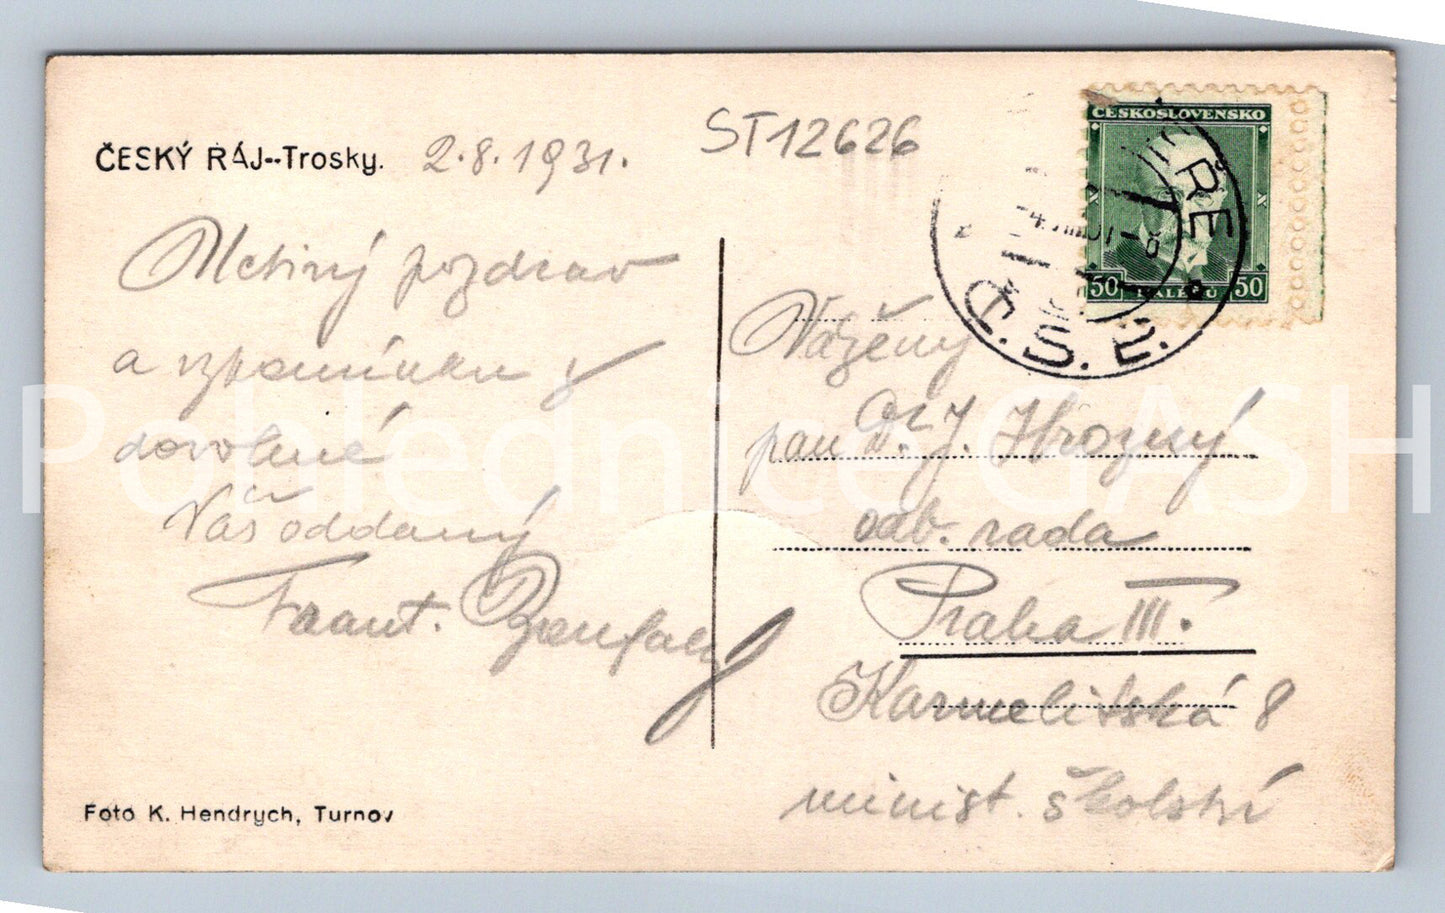 ČESKÝ RÁJ--Trosky. 2.8.1931.
ST12626
Uctivý pozdrav
a vzpomínku z
dovolené
Váš oddaný
Frant.
Foto K. Hendrych, Turnov
ČESKOSLOVENSKO
50 HALÉŘŮ 50
Č.S.R.
Vážený
pan Dr. J. Hrozný
odb. rada
Praha III.
Karmelitská 8
minist. školství
Pohlednice GASH